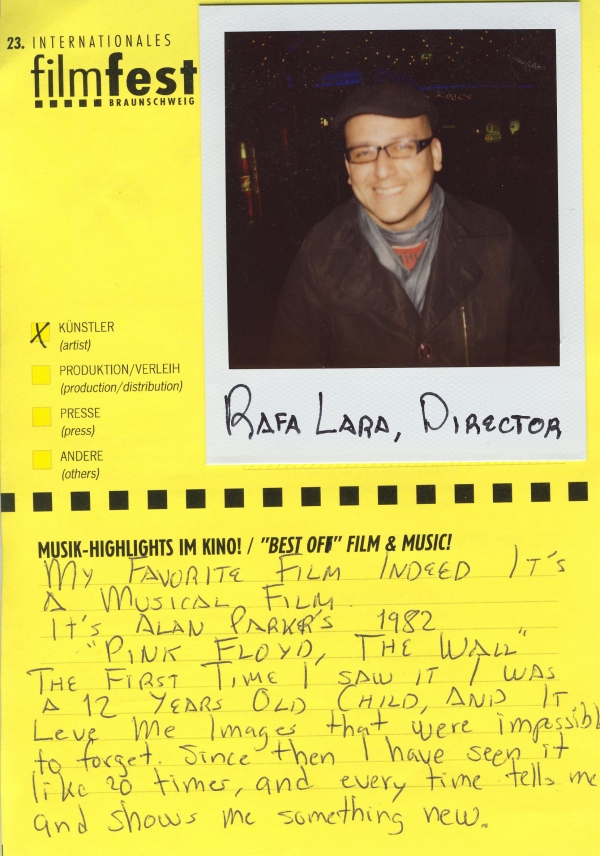 23. INTERNATIONALES
filmfest
BRAUNSCHWEIG
KÜNSTLER
(artist)
PRODUKTION/VERLEIH
(production/distribution)
PRESSE
(press)
ANDERE
(others)
RAFA LARA, DIRECTOR
MUSIK-HIGHLIGHTS IM KINO! / "BEST OFF" FILM & MUSIC!
MY FAVORITE FILM INDEED IT'S
A MUSICAL FILM.
IT'S ALAN PARKER'S 1982
"PINK FLOYD, THE WALL"
THE FIRST TIME I SAW IT I WAS
A 12 YEARS OLD CHILD, AND IT
Leve Me Images that were impossibl
to forget. Since then I have seen it
like 20 times, and every time tells me
and shows me something new.